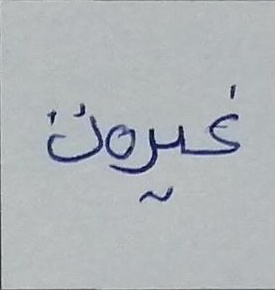 غيرون